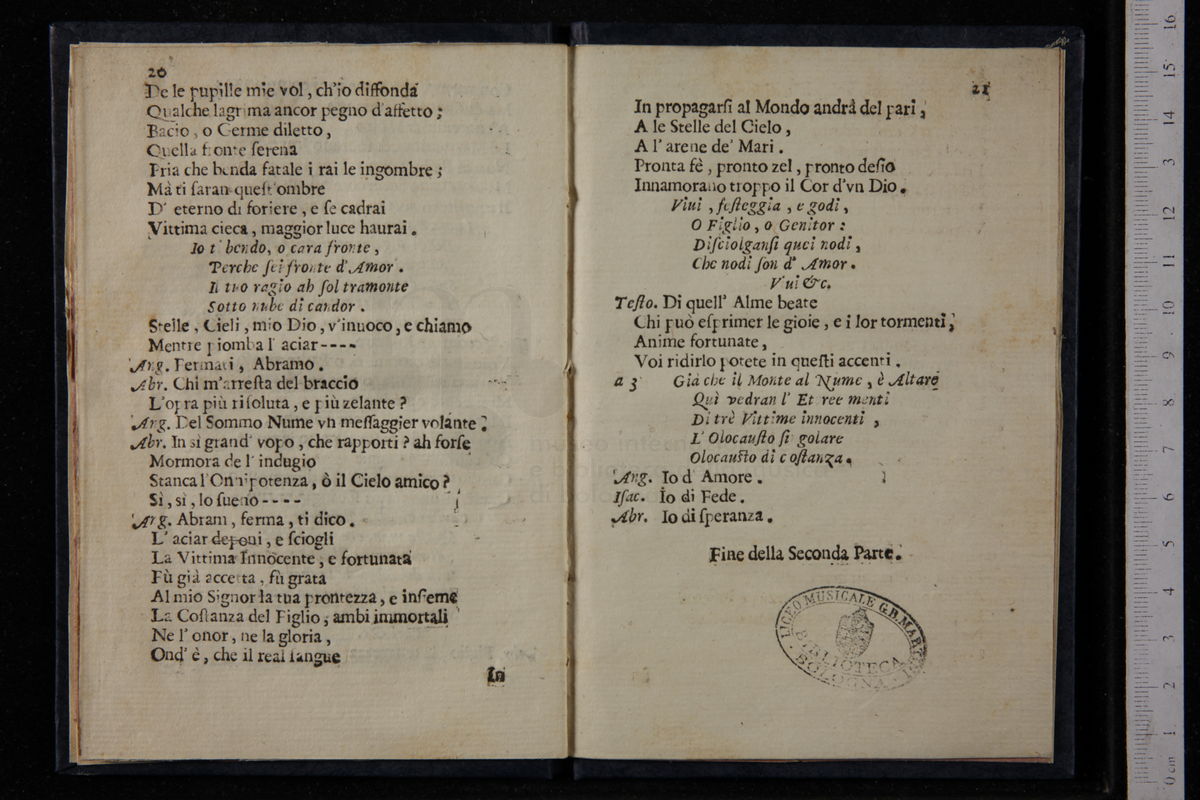 20
De le pupille mie vol, ch'io diffonda
Qualche lagrima ancor pegno d'affetto;
Bacio, o Germe diletto,
Quella fronte ſerena
Pria che benda fatale i rai le ingombre;
Mà ti ſaran queſt'ombre
D' eterno dì foriere, e ſe cadrai
Vittima cieca, maggior luce haurai.
Io t' bendo, o cara fronte,
Perche ſei fronte d'Amor.
Il tuo ragio ah ſol tramonte
Sotto nube di candor.
Stelle, Cieli, mio Dio, v'inuoco, e chiamo
Mentre piomba l' aciar----
Ang. Fermati, Abramo.
Abr. Chi m'arreſta del braccio
L'opra più riſoluta, e più zelante?
Arg. Del Sommo Nume vn meſſaggier volante.
Abr. In si grand' vopo, che rapporti? ah forſe
Mormora de l' indugio
Stanca l'Onnipotenza, ò il Cielo amico?
Sì, sì, lo ſueno----
Arg. Abram, ferma, ti dico.
L' aciar deponi, e ſciogli
La Vittima Innocente, e fortunata
Fù già accetta, fù grata
Al mio Signor la tua prontezza, e inſieme
La Coſtanza del Figlio, ambi immortali
Ne l' onor, ne la gloria,
Ond' è, che il real ſangue
In
21
In propagarſi al Mondo andrà del pari,
A le Stelle del Cielo,
A l' arene de' Mari.
Pronta fè, pronto zel, pronto deſio
Innamorano troppo il Cor d'vn Dio.
Viui, feſteggia, e godi,
O Figlio, o Genitor:
Diſciolganſi quei nodi,
Che nodi ſon d' Amor.
Viui &c.
Teſto. Di quell' Alme beate
Chi può eſprimer le gioie, e i lor tormenti,
Anime fortunate,
Voi ridirlo potete in queſti accenti.
a 3 Già che il Monte al Nume, è Altare
Quì vedran l' Et ree menti
Di trè Vittime innocenti,
L' Olocauſto ſi golare
Olocauſto di coſtanza.
Ang. Io d' Amore.
Iſac. Io di Fede.
Abr. Io di ſperanza.
Fine della Seconda Parte.
LICEO MUSICALE G.B. MARTINI
BIBLIOTECA
BOLOGNA